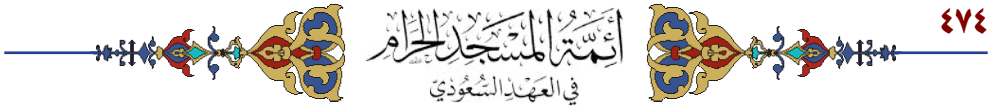 ٤٧٤
أَئِمَّةُ المَسْجِدِ الحَرَامِ
فِي العَهْدِ السُّعُودِيّ